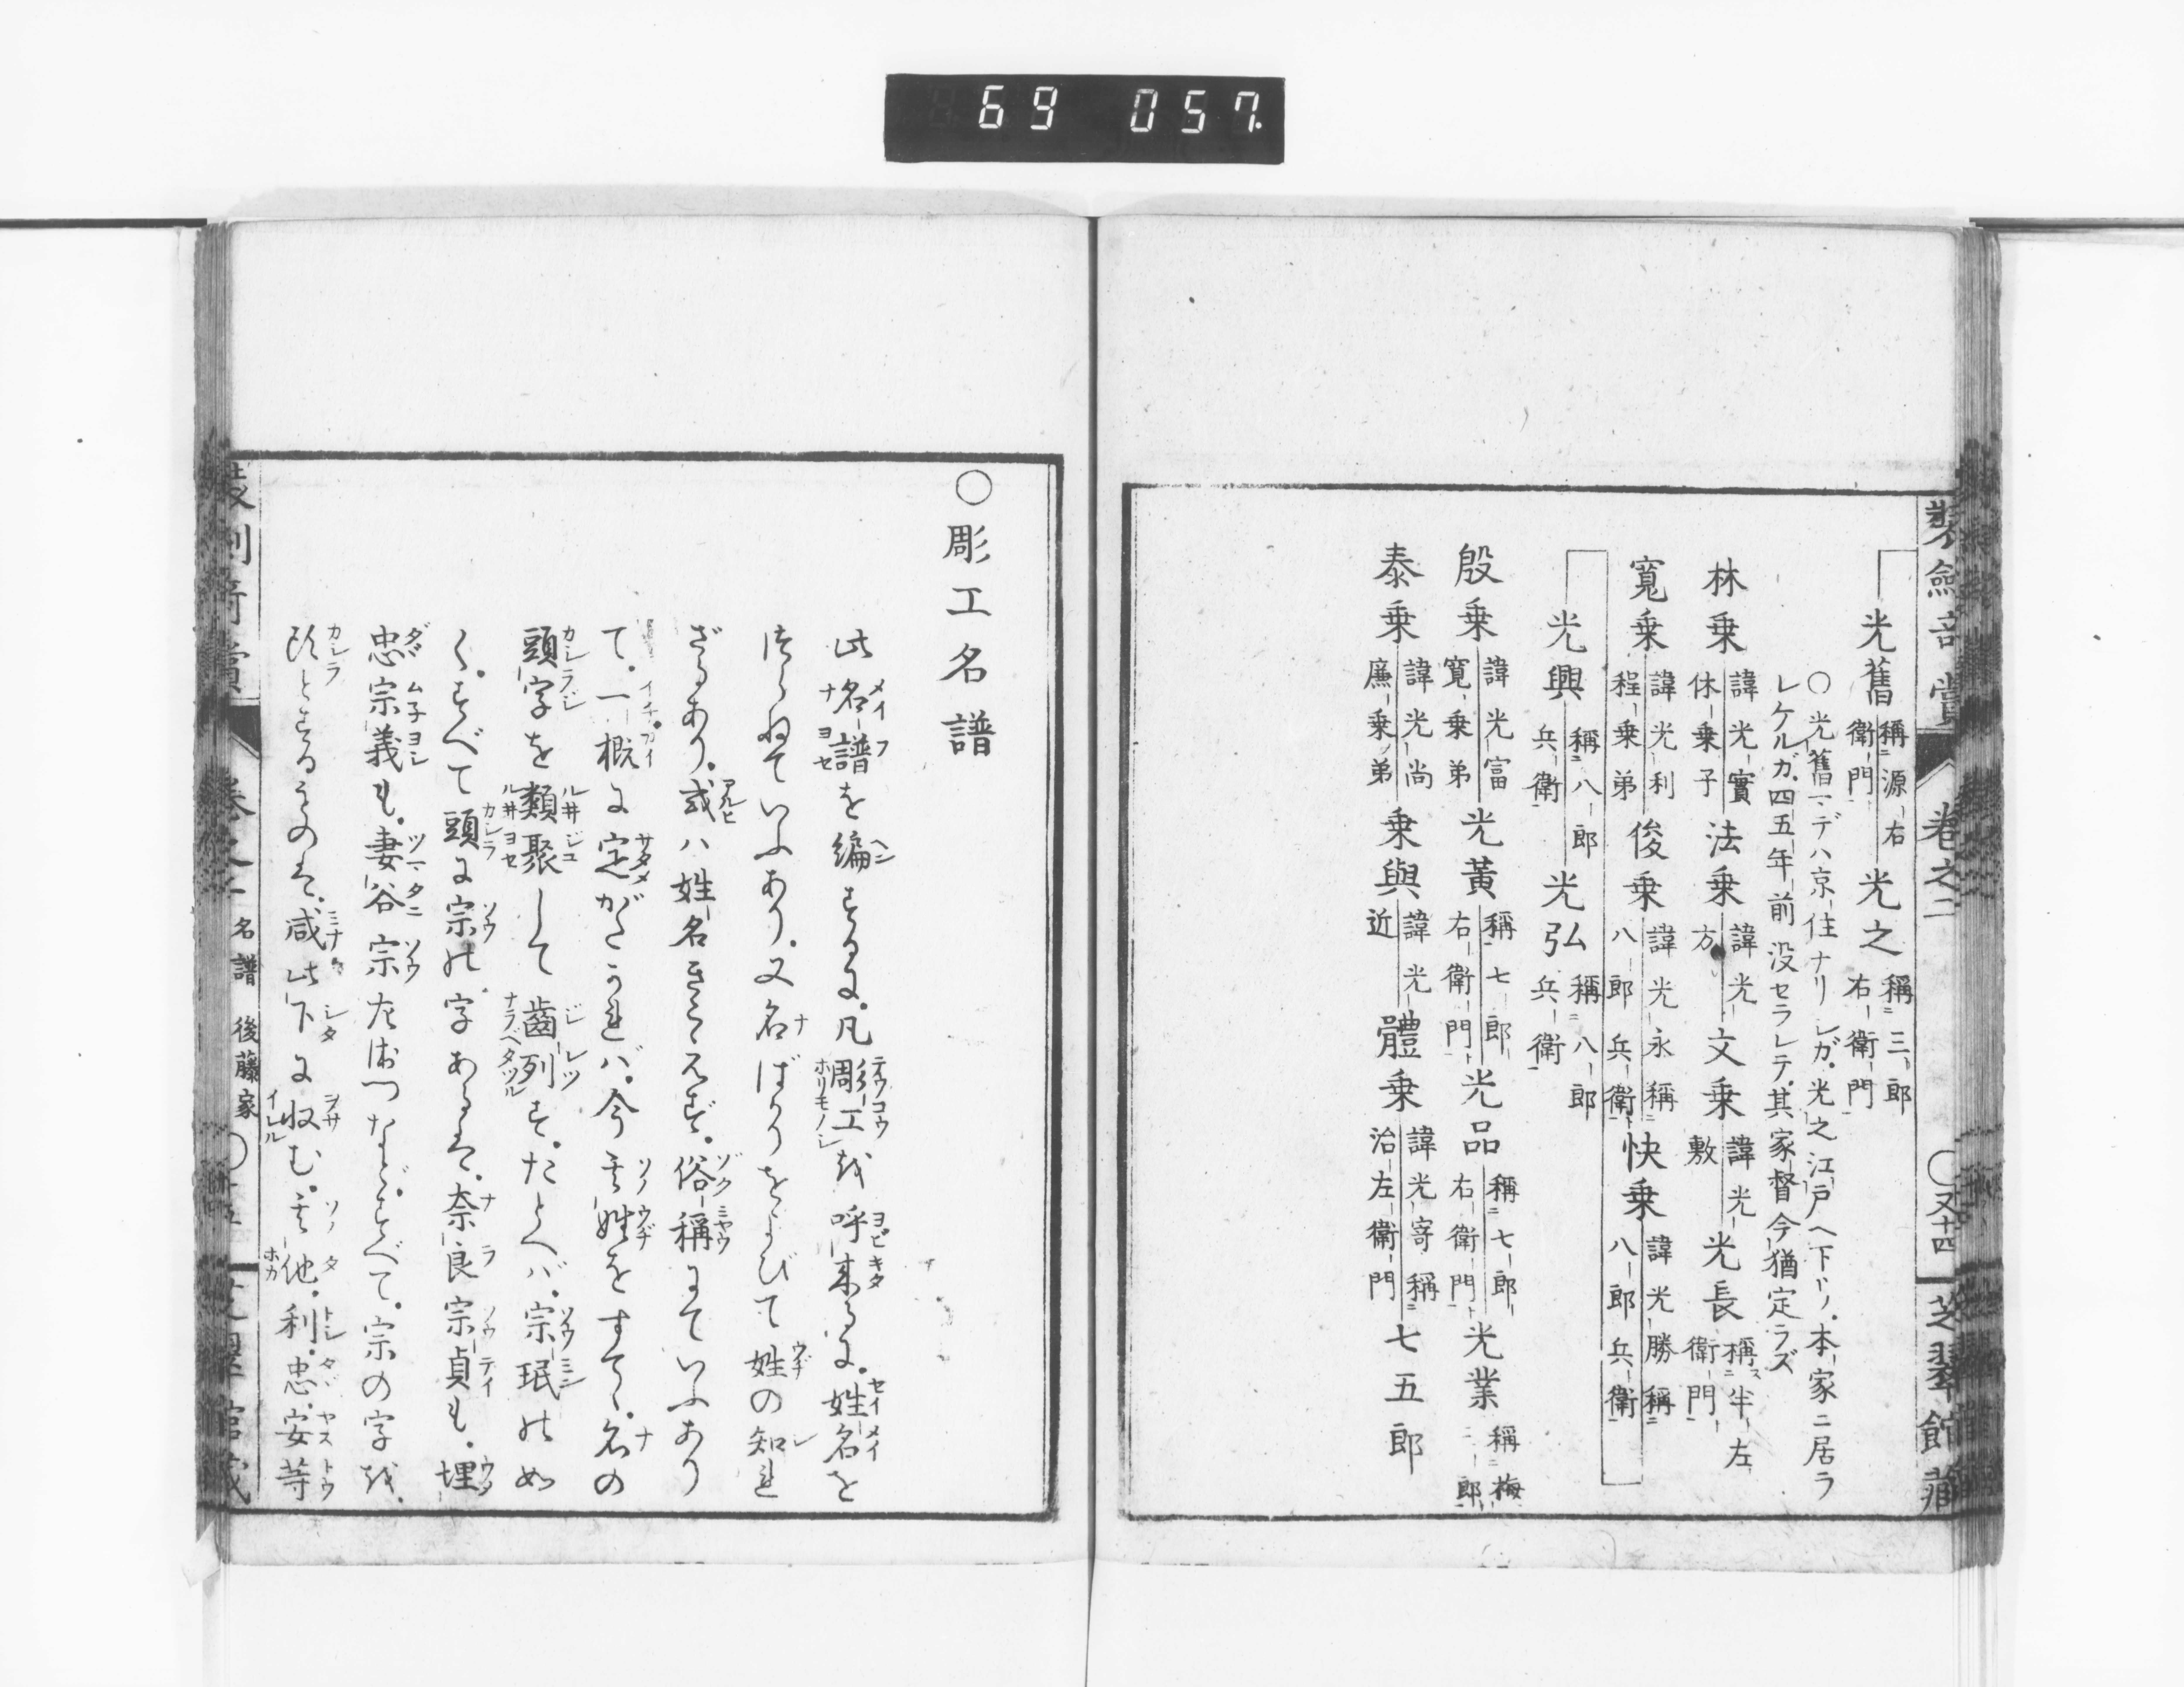 69 057.
装劒奇賞 巻之二 〇又十四 芝翠館藏
光舊 稱源右衛門 光之 稱三郎右衛門
〇光舊マデハ京住ナリシガ光之江戸ヘ下ドリ本家ニ居ラ
レケルガ四五年前没セラレテ其家督今猶定ラズ
林乗 諱光實休乗子 法乗 諱光方 文乗 諱光敷 光長 稱半左衛門
寛乗 諱光利程乗弟 俊乗 諱光永稱八郎兵衛 快乗 諱光勝稱八郎兵衛
光興 稱八郎兵衛 光弘 稱八郎兵衛
殷乗 諱光富寛乗弟 光黃 稱七郎右衛門 光品 稱七郎右衛門 光業 稱梅三郎
泰乗 諱光尚廉乗弟 乗與 諱光近 體乗 諱光寄稱治左衛門 七五郎
〇彫工名譜
此名譜を編するに凡彫工を呼来るに姓名を
つらねていふあり又名ばかりをよびて姓の知れ
ざるあり或ハ姓名きこえず俗稱にていふあり
て一概に定がたけれバ今其姓をすてゝ名の
頭字を類聚して齒列すたとへバ宗珉の如
くすべて頭に宗の字あるは奈良宗貞も埋
忠宗義も妻谷宗左衛門などすべて宗の字を
頭とするものは咸此下に収む其他利忠安等
装劍奇賞 巻之二 名譜 後藤家 〇十五 芝翠館藏